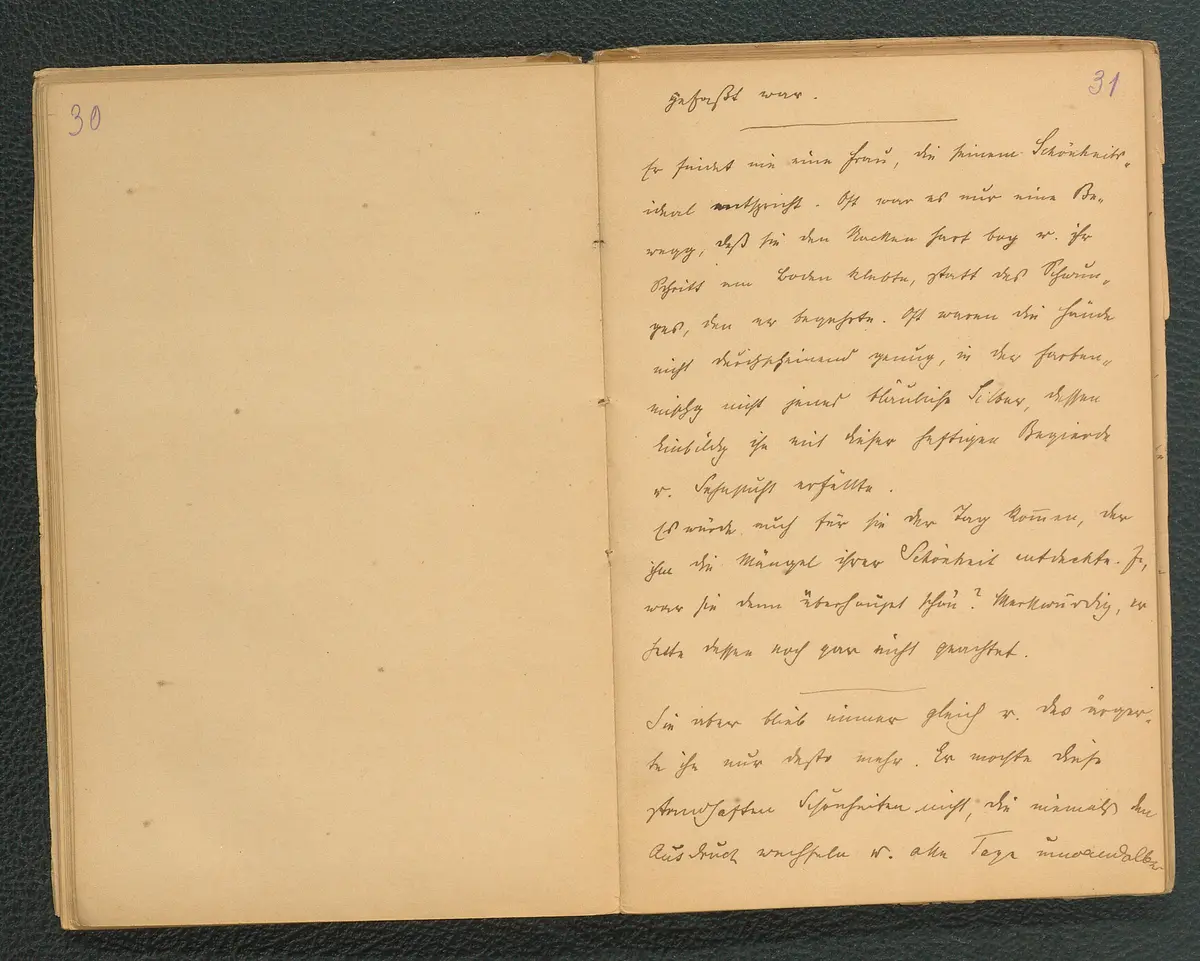 30
31
gefaßt war.
Er findet nie eine Frau, die seinem Schönheits-
ideal entspricht. Oft war es nur eine Be-
wegg, daß sie den Nacken hart bog u. ihr
Schritt am Boden klebte, statt des Schwun-
ges, den er begehrte. Oft waren die Hände
nicht durchscheinend genug, in der Farben-
mischg nicht jenes bläuliche Silber, dessen
Einbildg ihn mit dieser heftigen Begierde
u. Sehnsucht erfüllte.
Es würde auch für sie der Tag kommen, der
ihm die Mängel ihrer Schönheit entdeckte. Ja,
war sie denn überhaupt schön? Merkwürdig, er
hatte dessen noch gar nicht geachtet.
Sie aber blieb immer gleich u. das ärger-
te ihn nur desto mehr. Er mochte diese
standhaften Schönheiten nicht, die niemals den
Ausdruck wechseln u. alle Tage unwandelba-